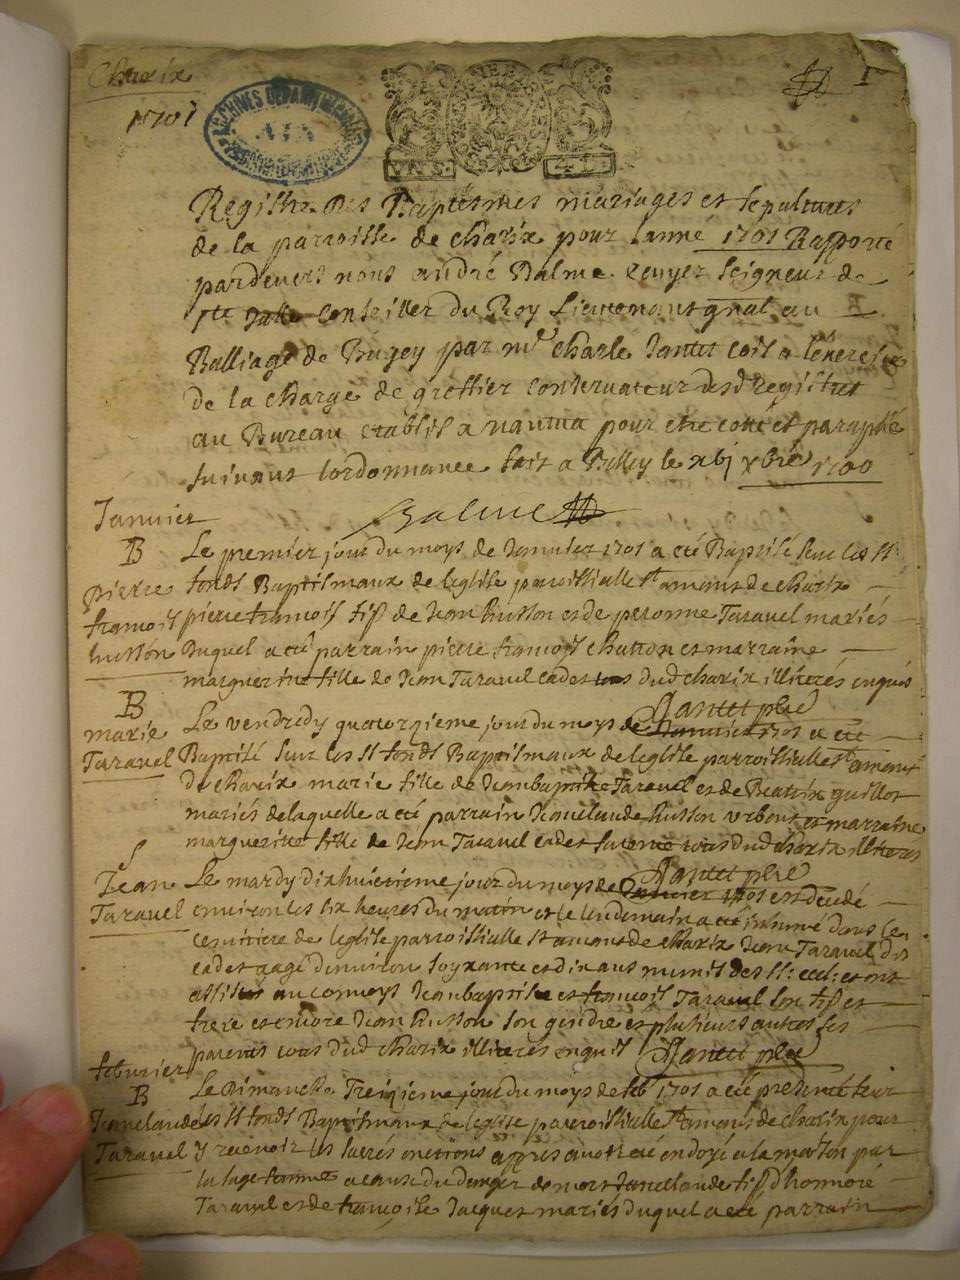 Charix
1701
ARCHIVES DEPARTEMENTALES
AIN
1
Registre des Baptesmes mariages et sepultures
de la parroisse de charix pour lanné 1701 Rapporté
pardevers nous andré Balme Ecuyer Seigneur de
Ste conseiller du Roy Lieutenant gnal au
Balliage de Bugey par mr charle Jantet a
de la charge de greffier conservateur desd registres
au Bureau etablis a nantua pour etre cotté et paraphé
suivant lordonnance fait a Belley le xbj xbre 1700
Balme
Janvier
B
pierre
francois
husson
Le premier jour du moys de Janvier 1701 a eté Baptisé sur les st
fonds Baptismaux de leglise parroissialle st amans de charix
pierre francois fils de Jean husson et de peronne Taravel mariés
Duquel a eté parrain pierre francois chatton et marraine
marguerite fille de Jean Taravel cadet tous dud charix illiterés enquis
Jantet pbre
B
marie
Taravel
Le vendredy quatorzieme jour du moys de Janvier 1701 a eté
Baptisé sur les st fonds Baptismaux de leglise parroissialle st amans
de charix marie fille de Jeanbaptiste Taravel et de Beatrix guillot
mariés de laquelle a eté parrain Jeanclaude husson et marraine
marguerite fille de Jean Taravel cadet tous dud charix illiterés
Jantet pbre
S
Jean
Taravel
Le mardy dixhuitieme jour du moys de Janvier 1701 est decedé
environ les six heures du matin et le lendemain a eté inhumé dans le
cemitiere de leglise parroissialle st amans de charix Jean Taravel dit
cadet agé denviron soyxante et dix ans munis des st: eccl: et ont
assisté au convoys Jeanbaptiste et francois Taravel son fils et
frere et encore Jean husson son gendre et plusieurs autres ses
parents tous dud charix illiterés enquis Jantet pbre
febvrier
B
Jeanclaude
Taravel
Le Dimanche Treizieme jour du moys de feb 1701 a eté presenté sur
les st fonds Baptismaux de leglise parroissialle st amans de charix pour
y recevoir les sacrés onctions appres avoir eté endoyé a la maison par
la sage femme a cause du danger de mort Jeanclaude fils dhonnoré
Taravel et de francoise Jacquet mariés duquel a eté parrain